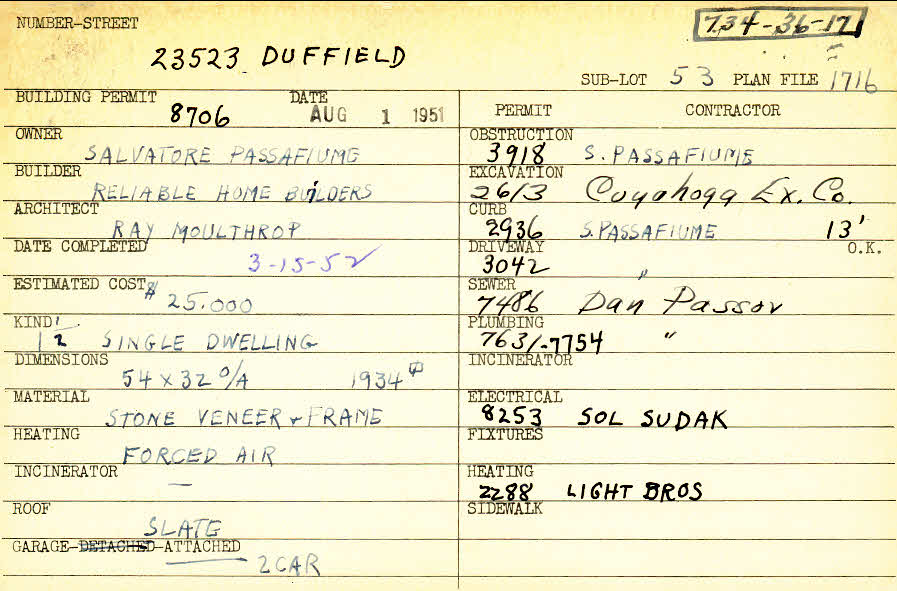 NUMBER-STREET
734-36-17
23523 DUFFIELD
SUB-LOT 53 PLAN FILE 1716
BUILDING PERMIT 8706 DATE AUG 1 1951
OWNER
SALVATORE PASSAFIUME
BUILDER
RELIABLE HOME BUILDERS
ARCHITECT
RAY MOULTHROP
DATE COMPLETED
3-15-52
ESTIMATED COST
$25.000
KIND
1 1/2 SINGLE DWELLING
DIMENSIONS
54 x 32 O/A 1934
MATERIAL
STONE VENEER + FRAME
HEATING
FORCED AIR
INCINERATOR
—
ROOF
SLATE
GARAGE-DETACHED-ATTACHED
2 CAR
PERMIT CONTRACTOR
OBSTRUCTION
3918 S. PASSAFIUME
EXCAVATION
2613 Cuyahoga Ex. Co.
CURB
2936 S. PASSAFIUME 13'
DRIVEWAY O.K.
3042 "
SEWER
7486 Dan Passov
PLUMBING
7631-7754 "
INCINERATOR
ELECTRICAL
8253 SOL SUDAK
FIXTURES
HEATING
2288 LIGHT BROS
SIDEWALK